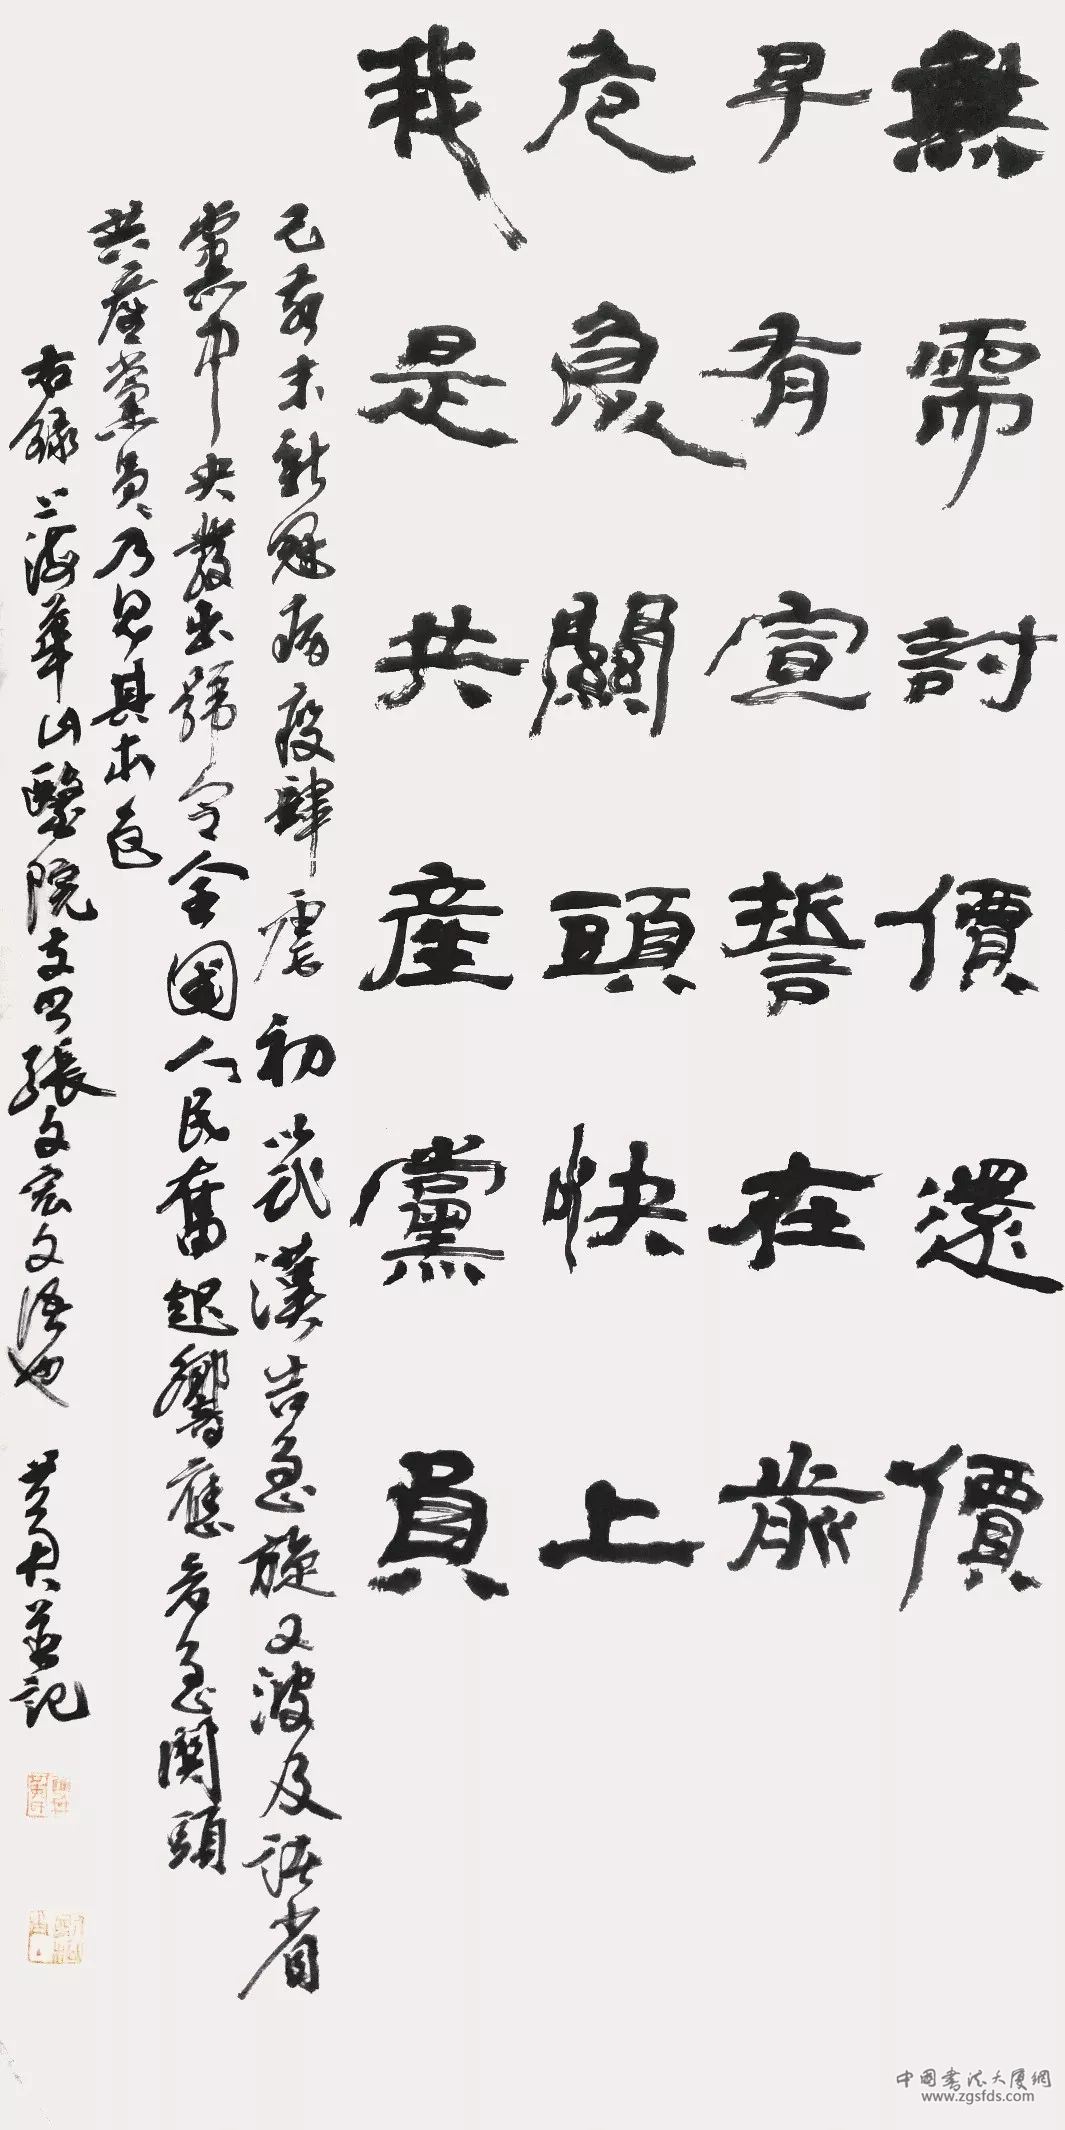 無需討價還價
早有宣誓在前
危急關頭快上
我是共產黨員
己亥末新冠病疫肆虐初武漢告急旋又波及諸省
黨中央發出號令全國人民奮起響應危急關頭
共產黨員乃見其本色
右錄上海華山醫院支書張文宏文語也
並記
中国書法大廈網
www.zgsfds.com